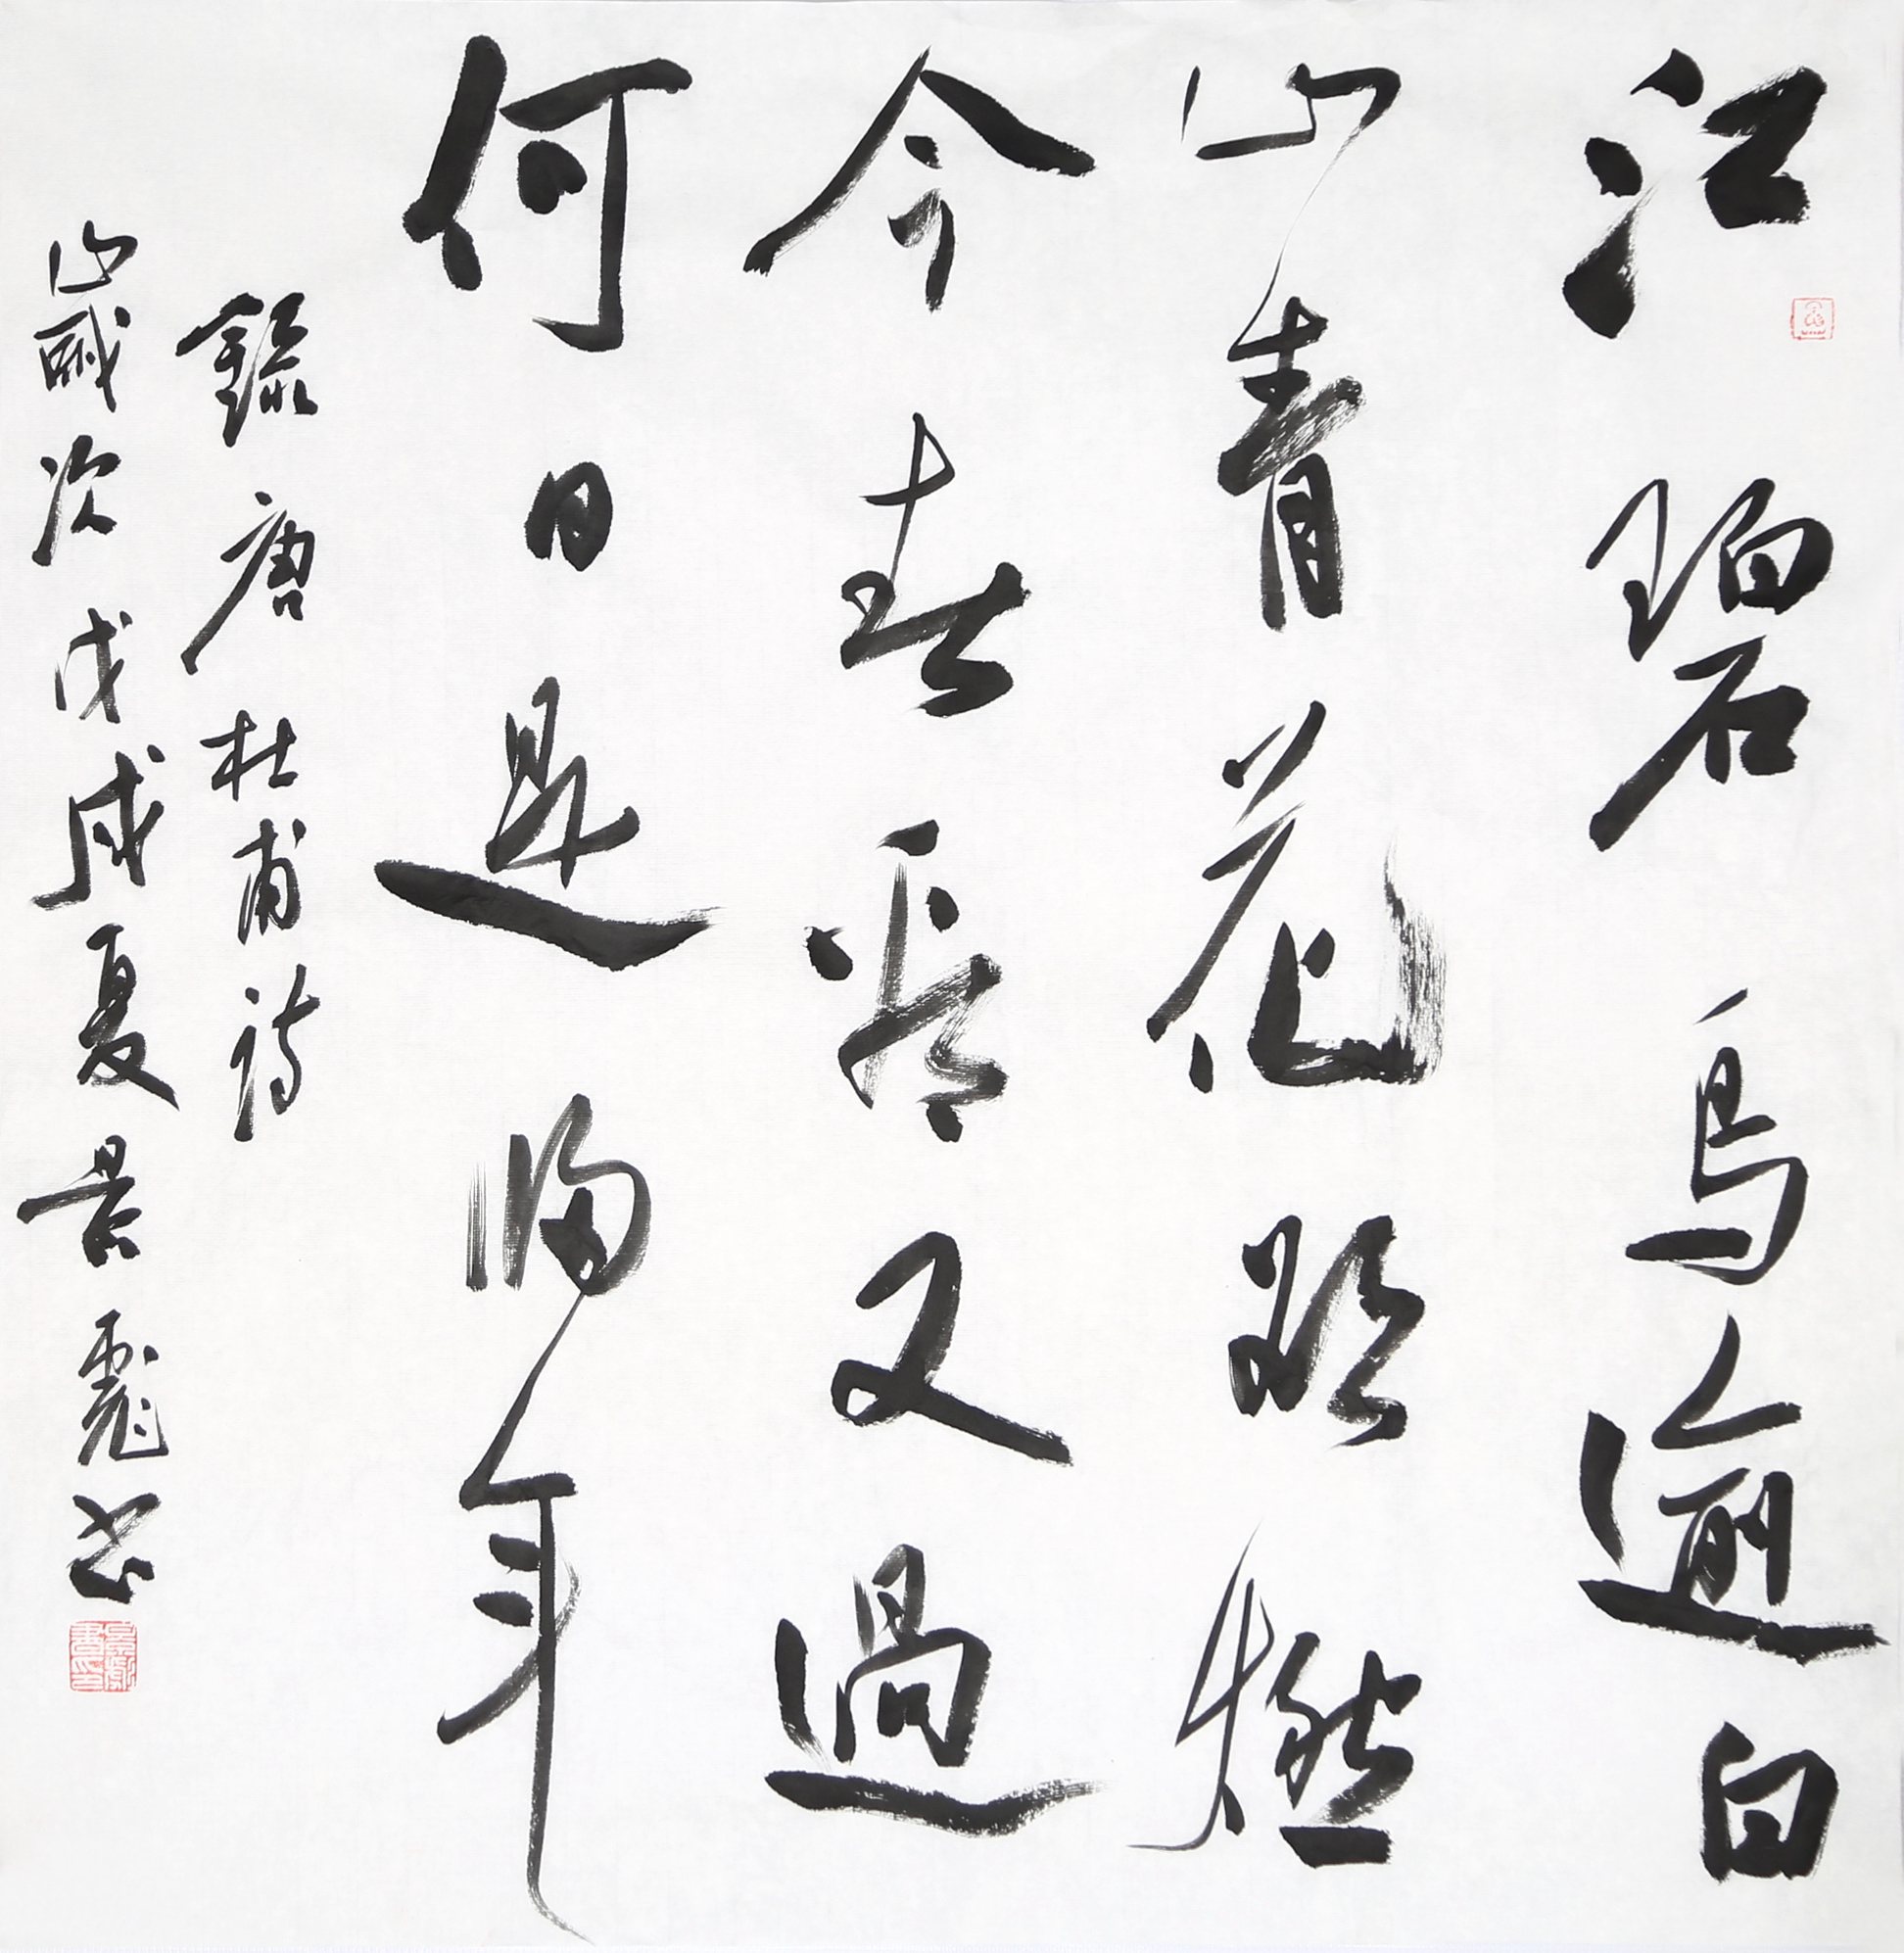 江碧鳥逾白
山青花欲燃
今春看又過
何日是歸年
錄唐杜甫詩
歲次戊戌夏景彪書